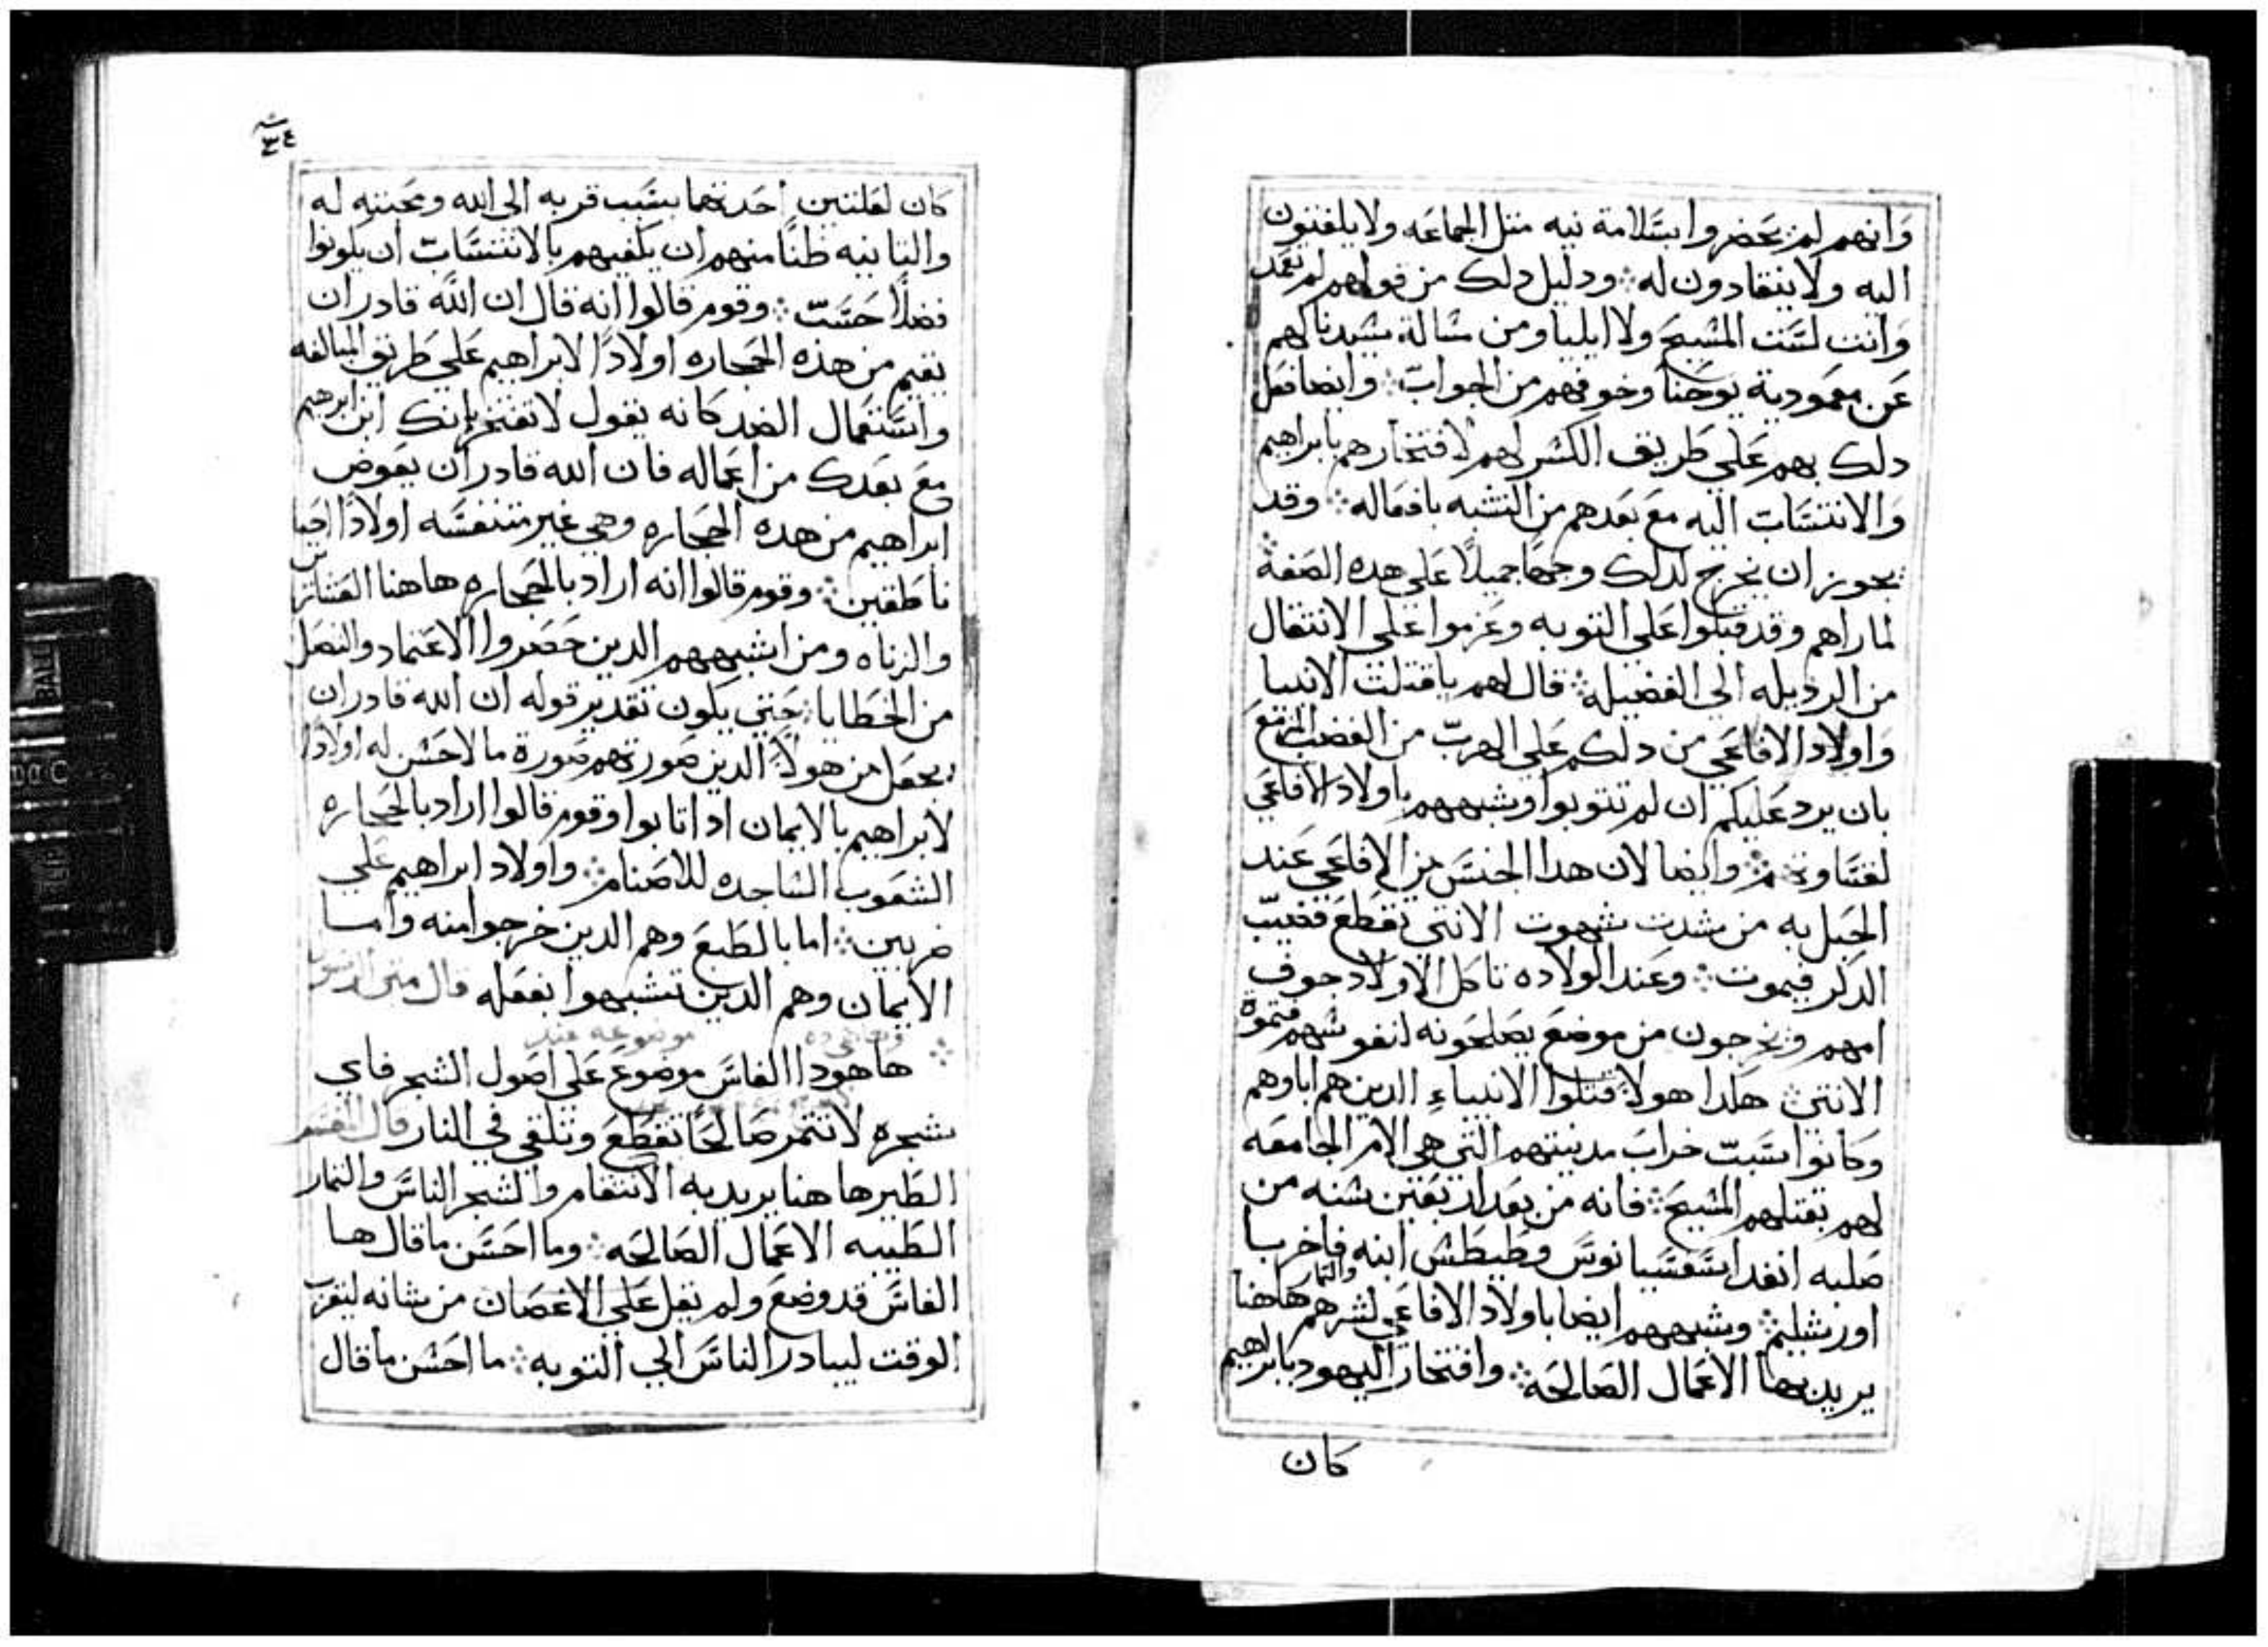 وانهم لم يحضروا بسلامة نيه متل الجماعه ولا يلفتون
اليه ولا ينقادون له ودليل دلك من قولهم لم تعمد
وانت لست المسيح ولا ايليا ومن سالة سيدنا لهم
عن معمودية يوحنا وخوفهم من الجواب وايضا فعل
دلك بهم على طريق الكسر لهم لافتخارهم بابراهيم
والانتساب اليه مع بعدهم من التشبه بافعاله وقد
يجوز ان يخرج لدلك وجها جميلا على هده الصفة
لما راهم وقد قبلوا على التوبه وعزموا على الانتقال
من الرديله الى الفضيله قال لهم ياقتلت الانبيا
واولاد الافاعي من دلكم على الهرب من الغضب المزمع
بان يرد عليكم ان لم تتوبوا وشبههم باولاد الافاعي
لقساوتهم وايضا لان هدا الجنس من الافاعي عند
الحبل به من شدت شهوت الانتي تقطع قضيب
الدكر فيموت وعند الولاده تاكل الاولاد جوف
امهم ويخرجون من موضع يصلحونه لنفوسهم فتموت
الانتي هكدا هولا قتلوا الانبياء الدين هم اباوهم
وكانوا سبب خراب مدينتهم التي هي الام الجامعه
لهم بقتلهم المسيح فانه من بعد اربعين سنه من
صلبه انفد اسفسيانوس وطيطس ابنه فاخربا
اورشليم وشبههم ايضا باولاد الافاعي لشرهم والتمار هاهنا
يريد بها الاعمال الصالحه وافتخار اليهود بابراهيم
كان
٣٤
كان لعلتين احدتهما بسبب قربه الى الله ومحبته له
والتانيه ظنا منهم ان يكفيهم بالانتساب ان يكونوا
فضلا حسب وقوم قالوا انه قال ان الله قادر ان
يقيم من هذه الحجاره اولادا لابراهيم على طريق المبالغه
واستعمال الضد كانه يقول لا تفتخر بانك ابن ابرهيم
مع بعدك من اعماله فان الله قادر ان يعوض
ابراهيم من هده الحجاره وهي غير متنفسه اولادا احيا
ناطقين وقوم قالوا انه اراد بالحجاره هاهنا العشارين
والزناه ومن اشبههم الدين حضروا الاعتماد والتنصل
من الخطايا حتي يكون تقدير قوله ان الله قادر ان
يجعل من هولا الدين صورتهم صورة ما لا حس له اولادا
لابراهيم بالايمان ادا تابوا وقوم قالوا اراد بالحجاره
الشعوب الساجده للاصنام واولاد ابراهيم علي
ضربين اما بالطبع وهم الدين خرجوا منه واما
الايمان وهم الدين تشبهوا بفعله قال متى الرسول
موضوعه عند
هاهودا الفاس موضوع على اصول الشجر فاي
شجره لا تتمر صالحا تقطع وتلقي في النار قال المفسر
الطبر هاهنا يريد به الانتقام والشجر الناس والتمار
الطيبه الاعمال الصالحه وما احسن ما قال ها
الفاس قد وضع ولم يقل على الاغصان من شانه ليقرب
الوقت ليبادر الناس الى التوبه ما احسن ما قال